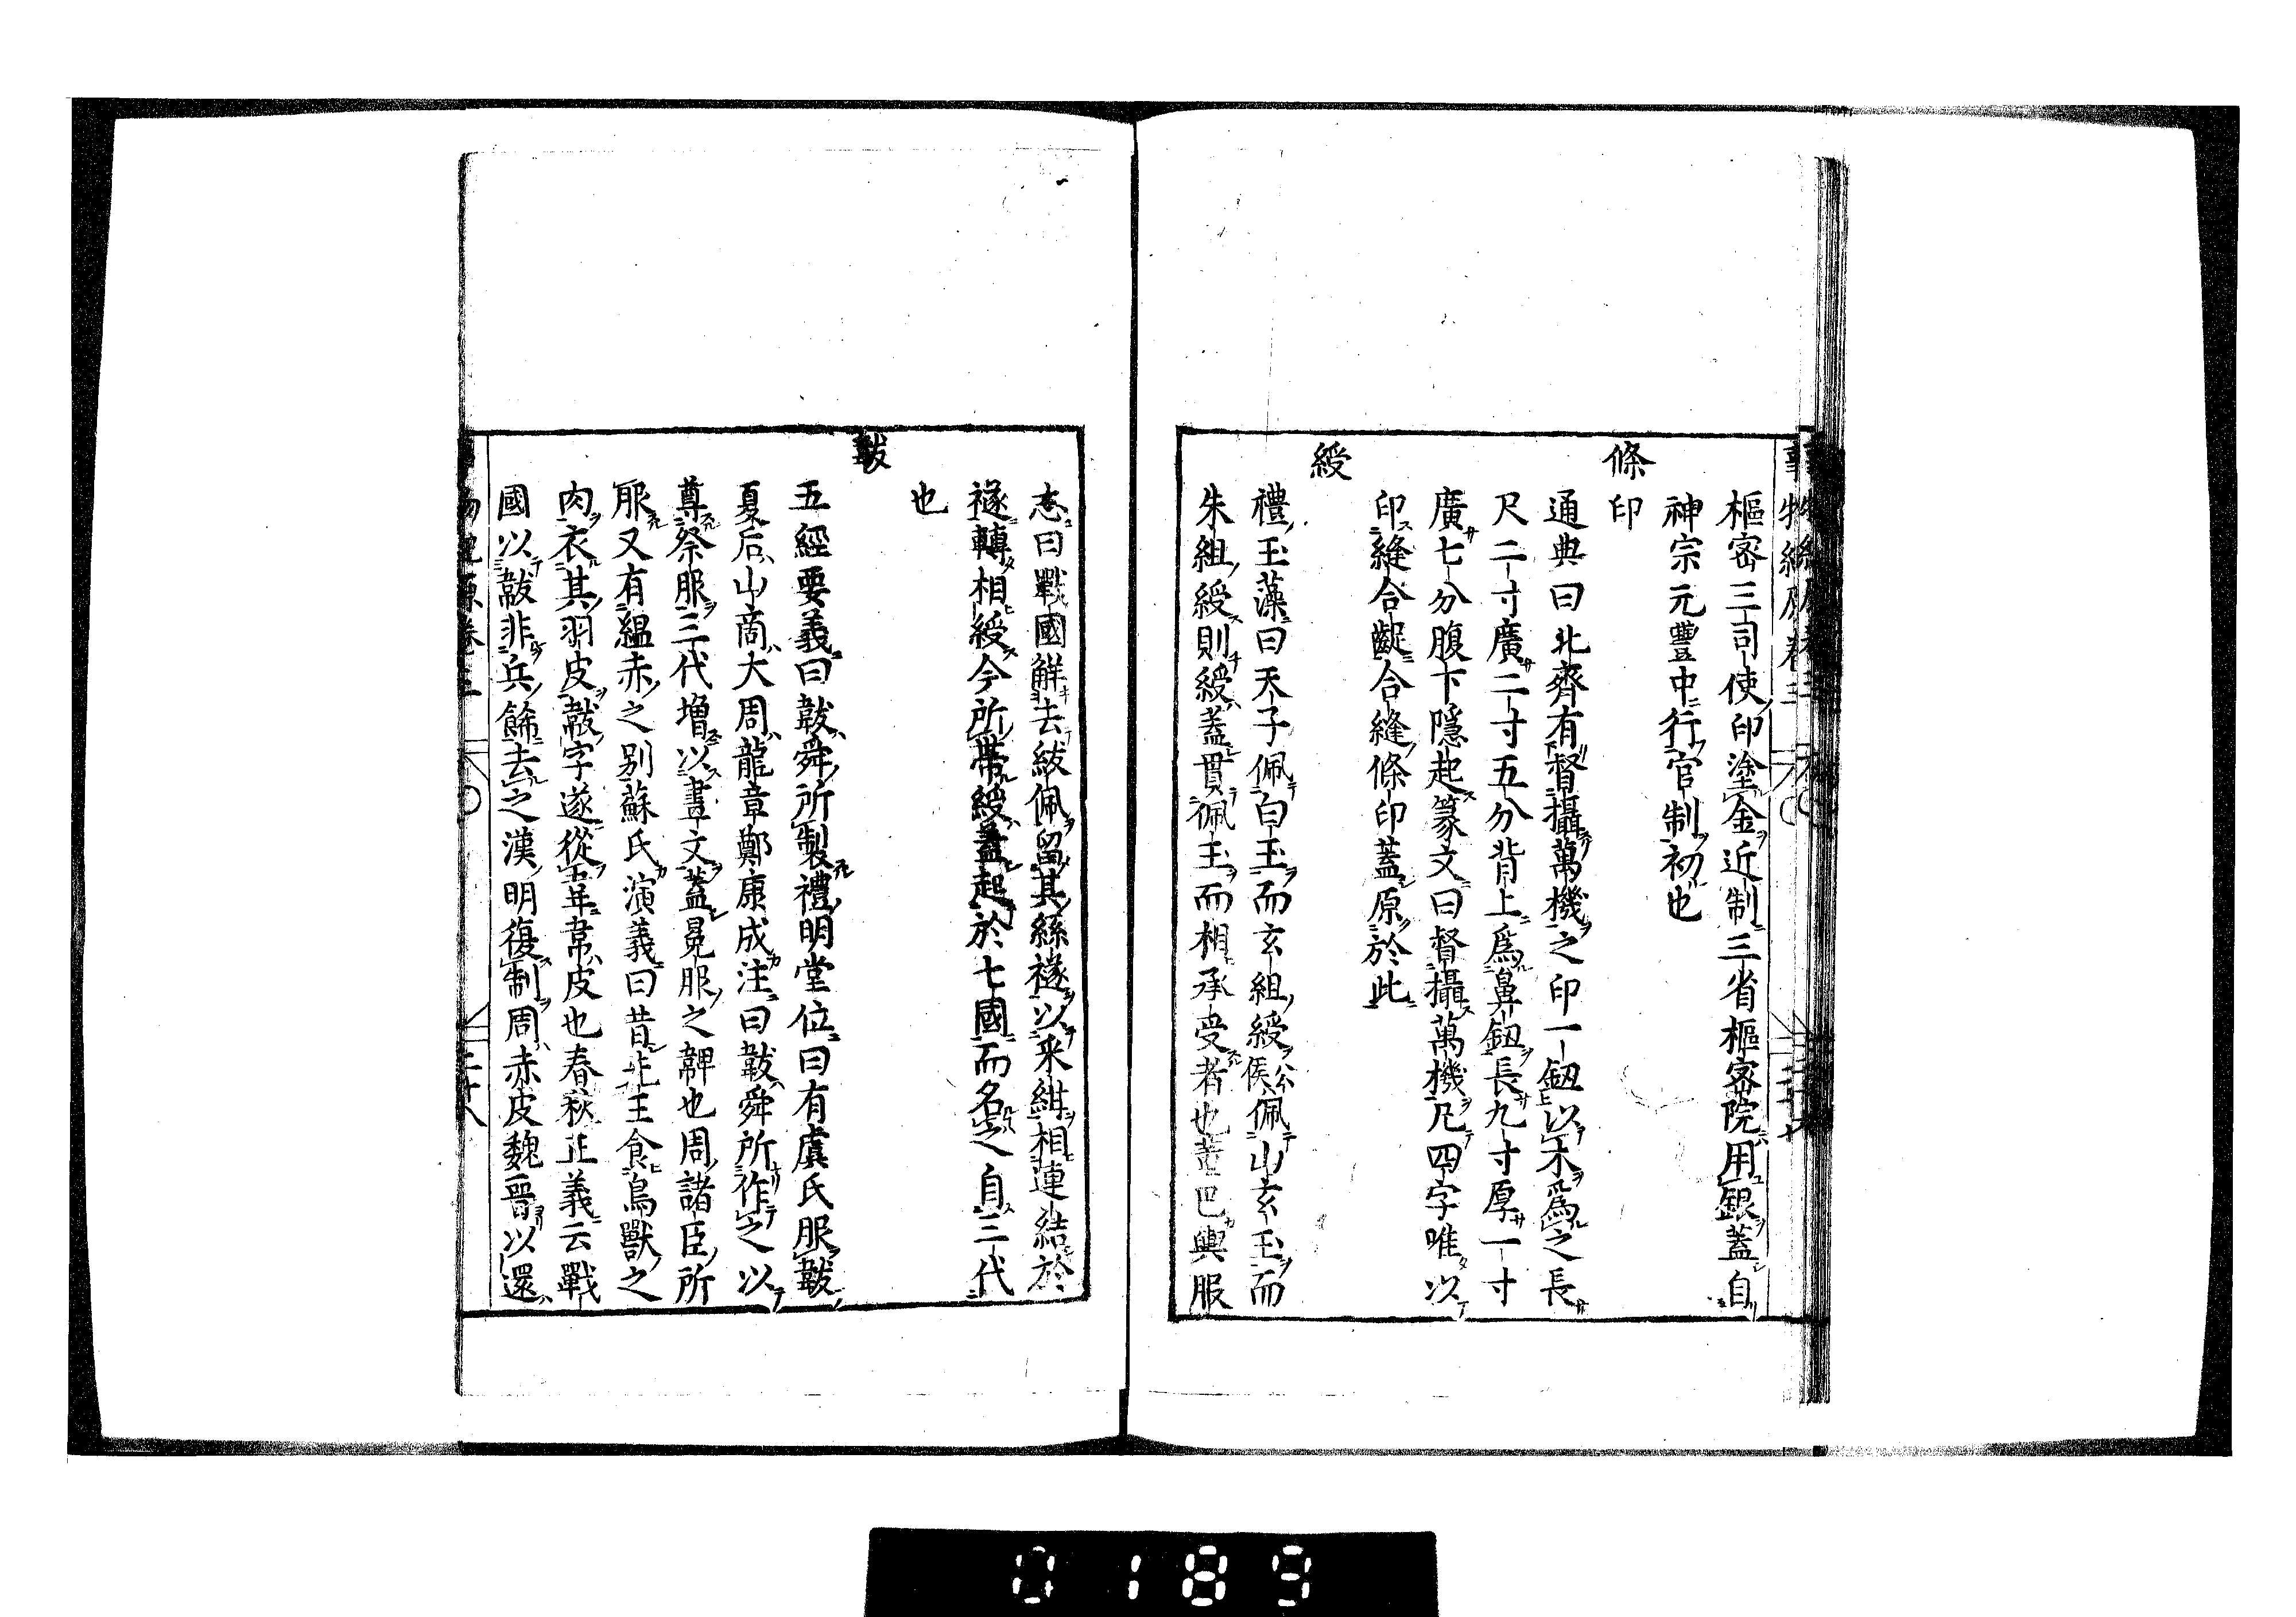 樞密三司使印塗金近制三省樞密院用銀蓋自
神宗元豐中行官制初也
條印
通典曰北齊有督攝萬機之印一鈕以木爲之長
尺二寸廣二寸五分背上爲鼻鈕長九寸厚一寸
廣七分腹下隱起篆文曰督攝萬機凡四字唯以
印縫合齪合縫條印蓋原於此
綬
禮玉藻曰天子佩白玉而玄組綬公侯佩山玄玉而
朱組綬則綬蓋貫佩玉而相承受者也董巴輿服
志曰戰國解去紱佩留其絲襚以采紺相連結於
襚轉相綬今所帶綬蓋起於七國而名之自三代
也
韍
五經要義曰韍舜所製禮明堂位曰有虞氏服韍
夏后山商火周龍章鄭康成注曰韍舜所作之以
尊祭服三代増以畫文蓋冕服之韠也周諸臣所
服又有緼赤之别蘇氏演義曰昔先王食鳥獸之
肉衣其羽皮韍字遂從韋韋皮也春秋正義云戰
國以韍非兵餙去之漢明復制周赤皮魏晉以還